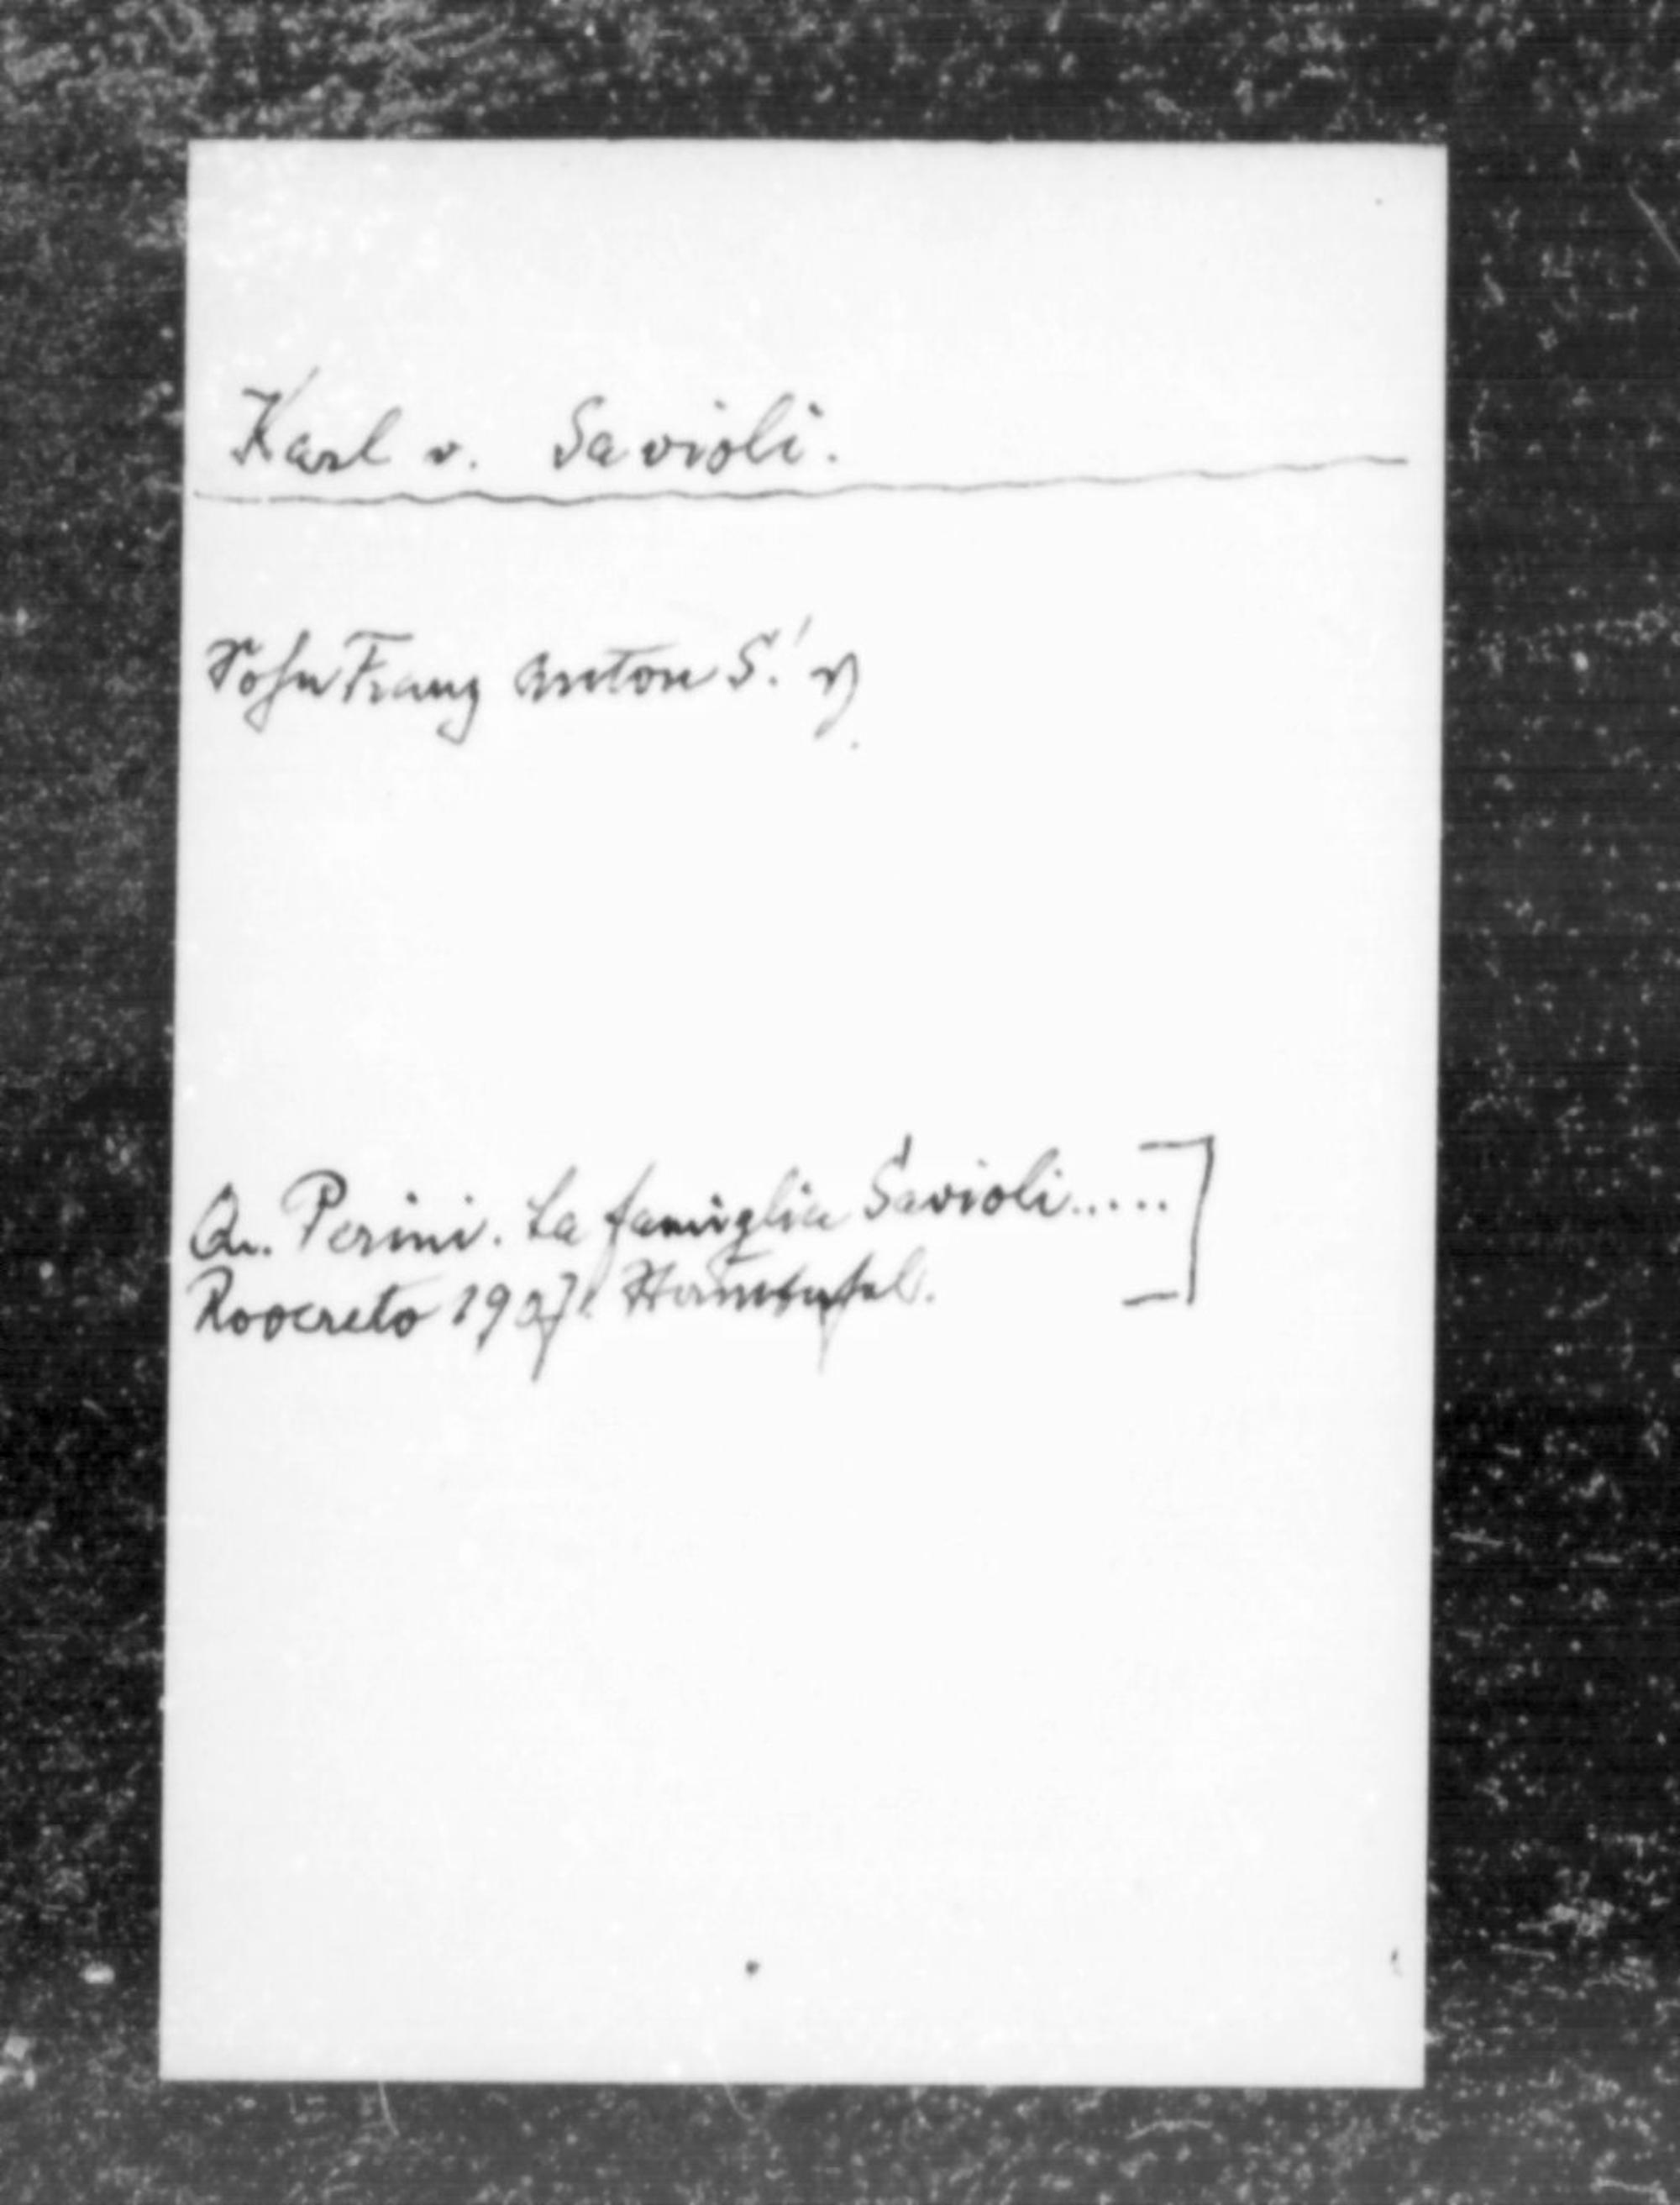 Karl v. Savioli.
Sohn Franz Anton S.'
Qu. Perini. La famiglia Savioli.....
Rovereto 1907. Stammtafel.